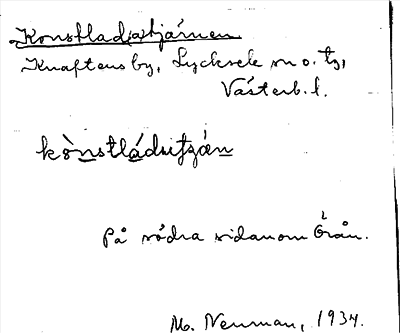 Konstlad(a)tjärnen
Knaftens by, Lycksele sn o. tg,
Västerb. l.
kònstládsitjæn
På södra sidan om Örån.
M. Neuman, 1934.